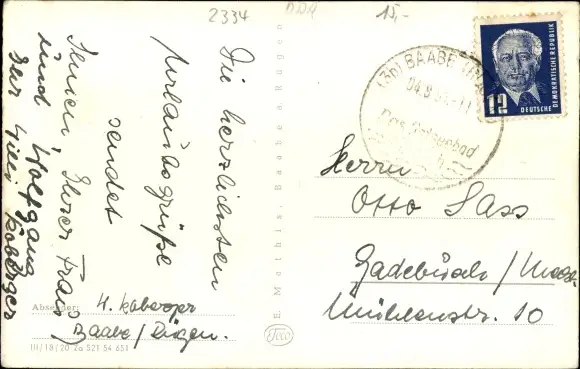 2334
DDR
15,-
Die herzlichsten
Urlaubsgrüße
sendet
Ihnen, Ihrer Frau
und Wolfgang
Ihr Willi Koberger
Absender: H. Koberger
Baabe/Rügen.
III/18/20 Za 521 54 651
E. Mathis, Baabe a. Rügen
(3b) BAABE
Das Ostseebad
12
DEUTSCHE
DEMOKRATISCHE REPUBLIK
Herrn
Otto Sass
Gadebusch/Meckl.
Mühlenstr. 10